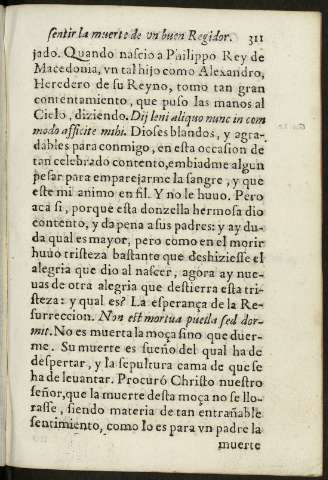 sentir la muerte de vn buen Regidor. 311
jado. Quando nascio a Philippo Rey de
Macedonia, vn tal hijo como Alexandro,
Heredero de su Reyno, tomo tan gran
contentamiento, que puso las manos al
Cielo, diziendo. Dij leni aliquo nunc in com
modo afficite mihi. Dioses blandos, y agra-
dables para conmigo, en esta occasion de
tan celebrado contento, embiadme algun
pesar para emparejarme la sangre, y que
este mi animo en fil. Y no le huuo. Pero
aca si, porque esta donzella hermosa dio
contento, y da pena a sus padres: y ay du-
da qual es mayor, pero como en el morir
huuo tristeza bastante que deshiziesse el
alegria que dio al nascer, agora ay nue-
uas de otra alegria que destierra esta tri-
steza: y qual es? La esperança de la Re-
surreccion. Non est mortua puella sed dor-
mit. No es muerta la moça sino que duer-
me. Su muerte es sueño del qual ha de
despertar, y la sepultura cama de que se
ha de leuantar. Procuró Christo nuestro
señor, que la muerte desta moça no se llo-
rasse, siendo materia de tan entrañable
sentimiento, como lo es para vn padre la
muerte